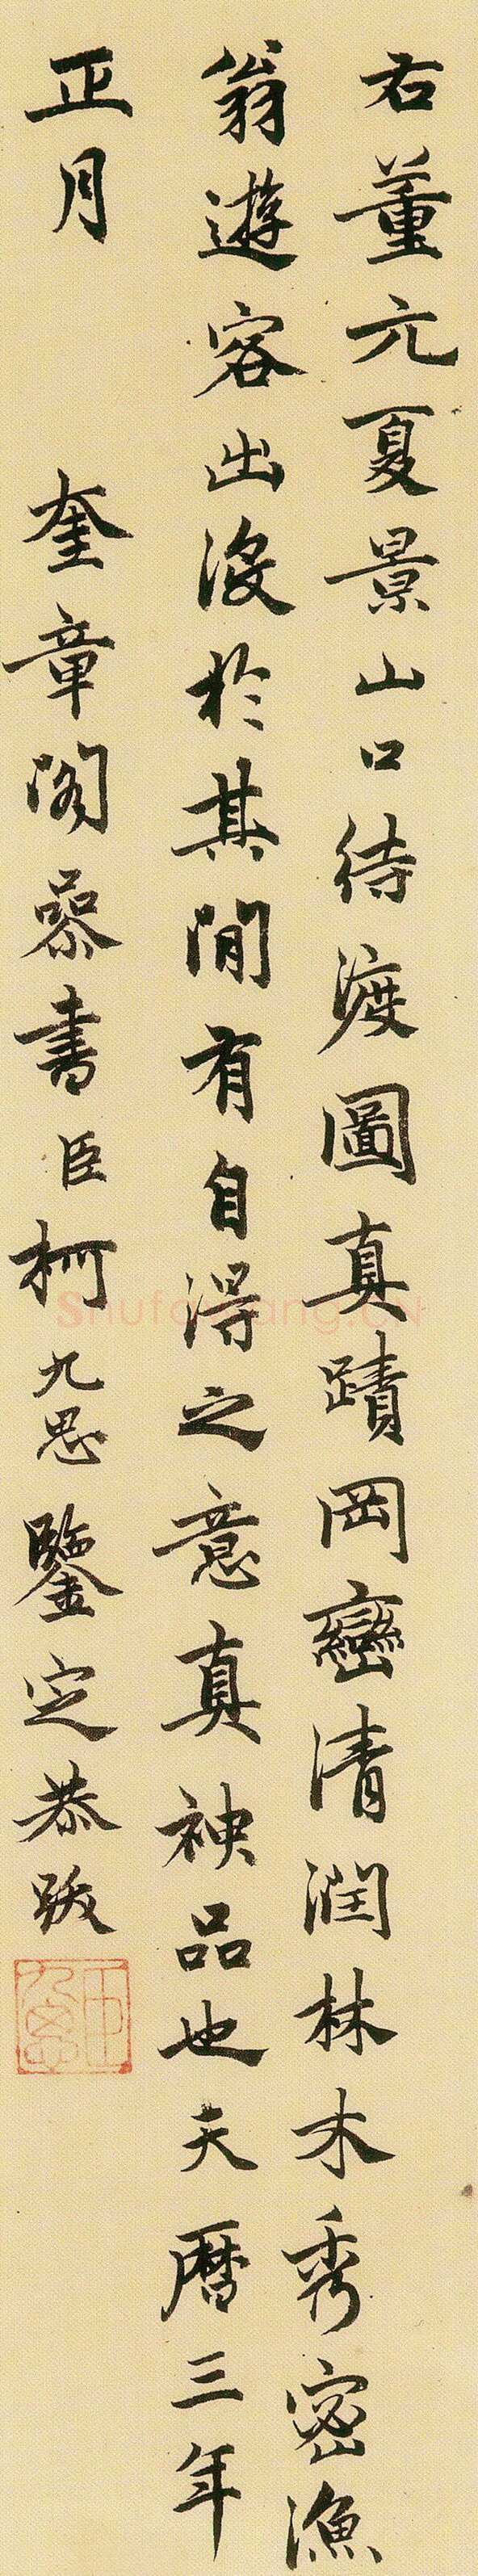 右董元夏景山口待渡圖真蹟岡巒清潤林木秀密漁
翁遊客出沒於其閒有自得之意真神品也天曆三年
正月 奎章閣參書臣柯九思鑒定恭跋
臣九思